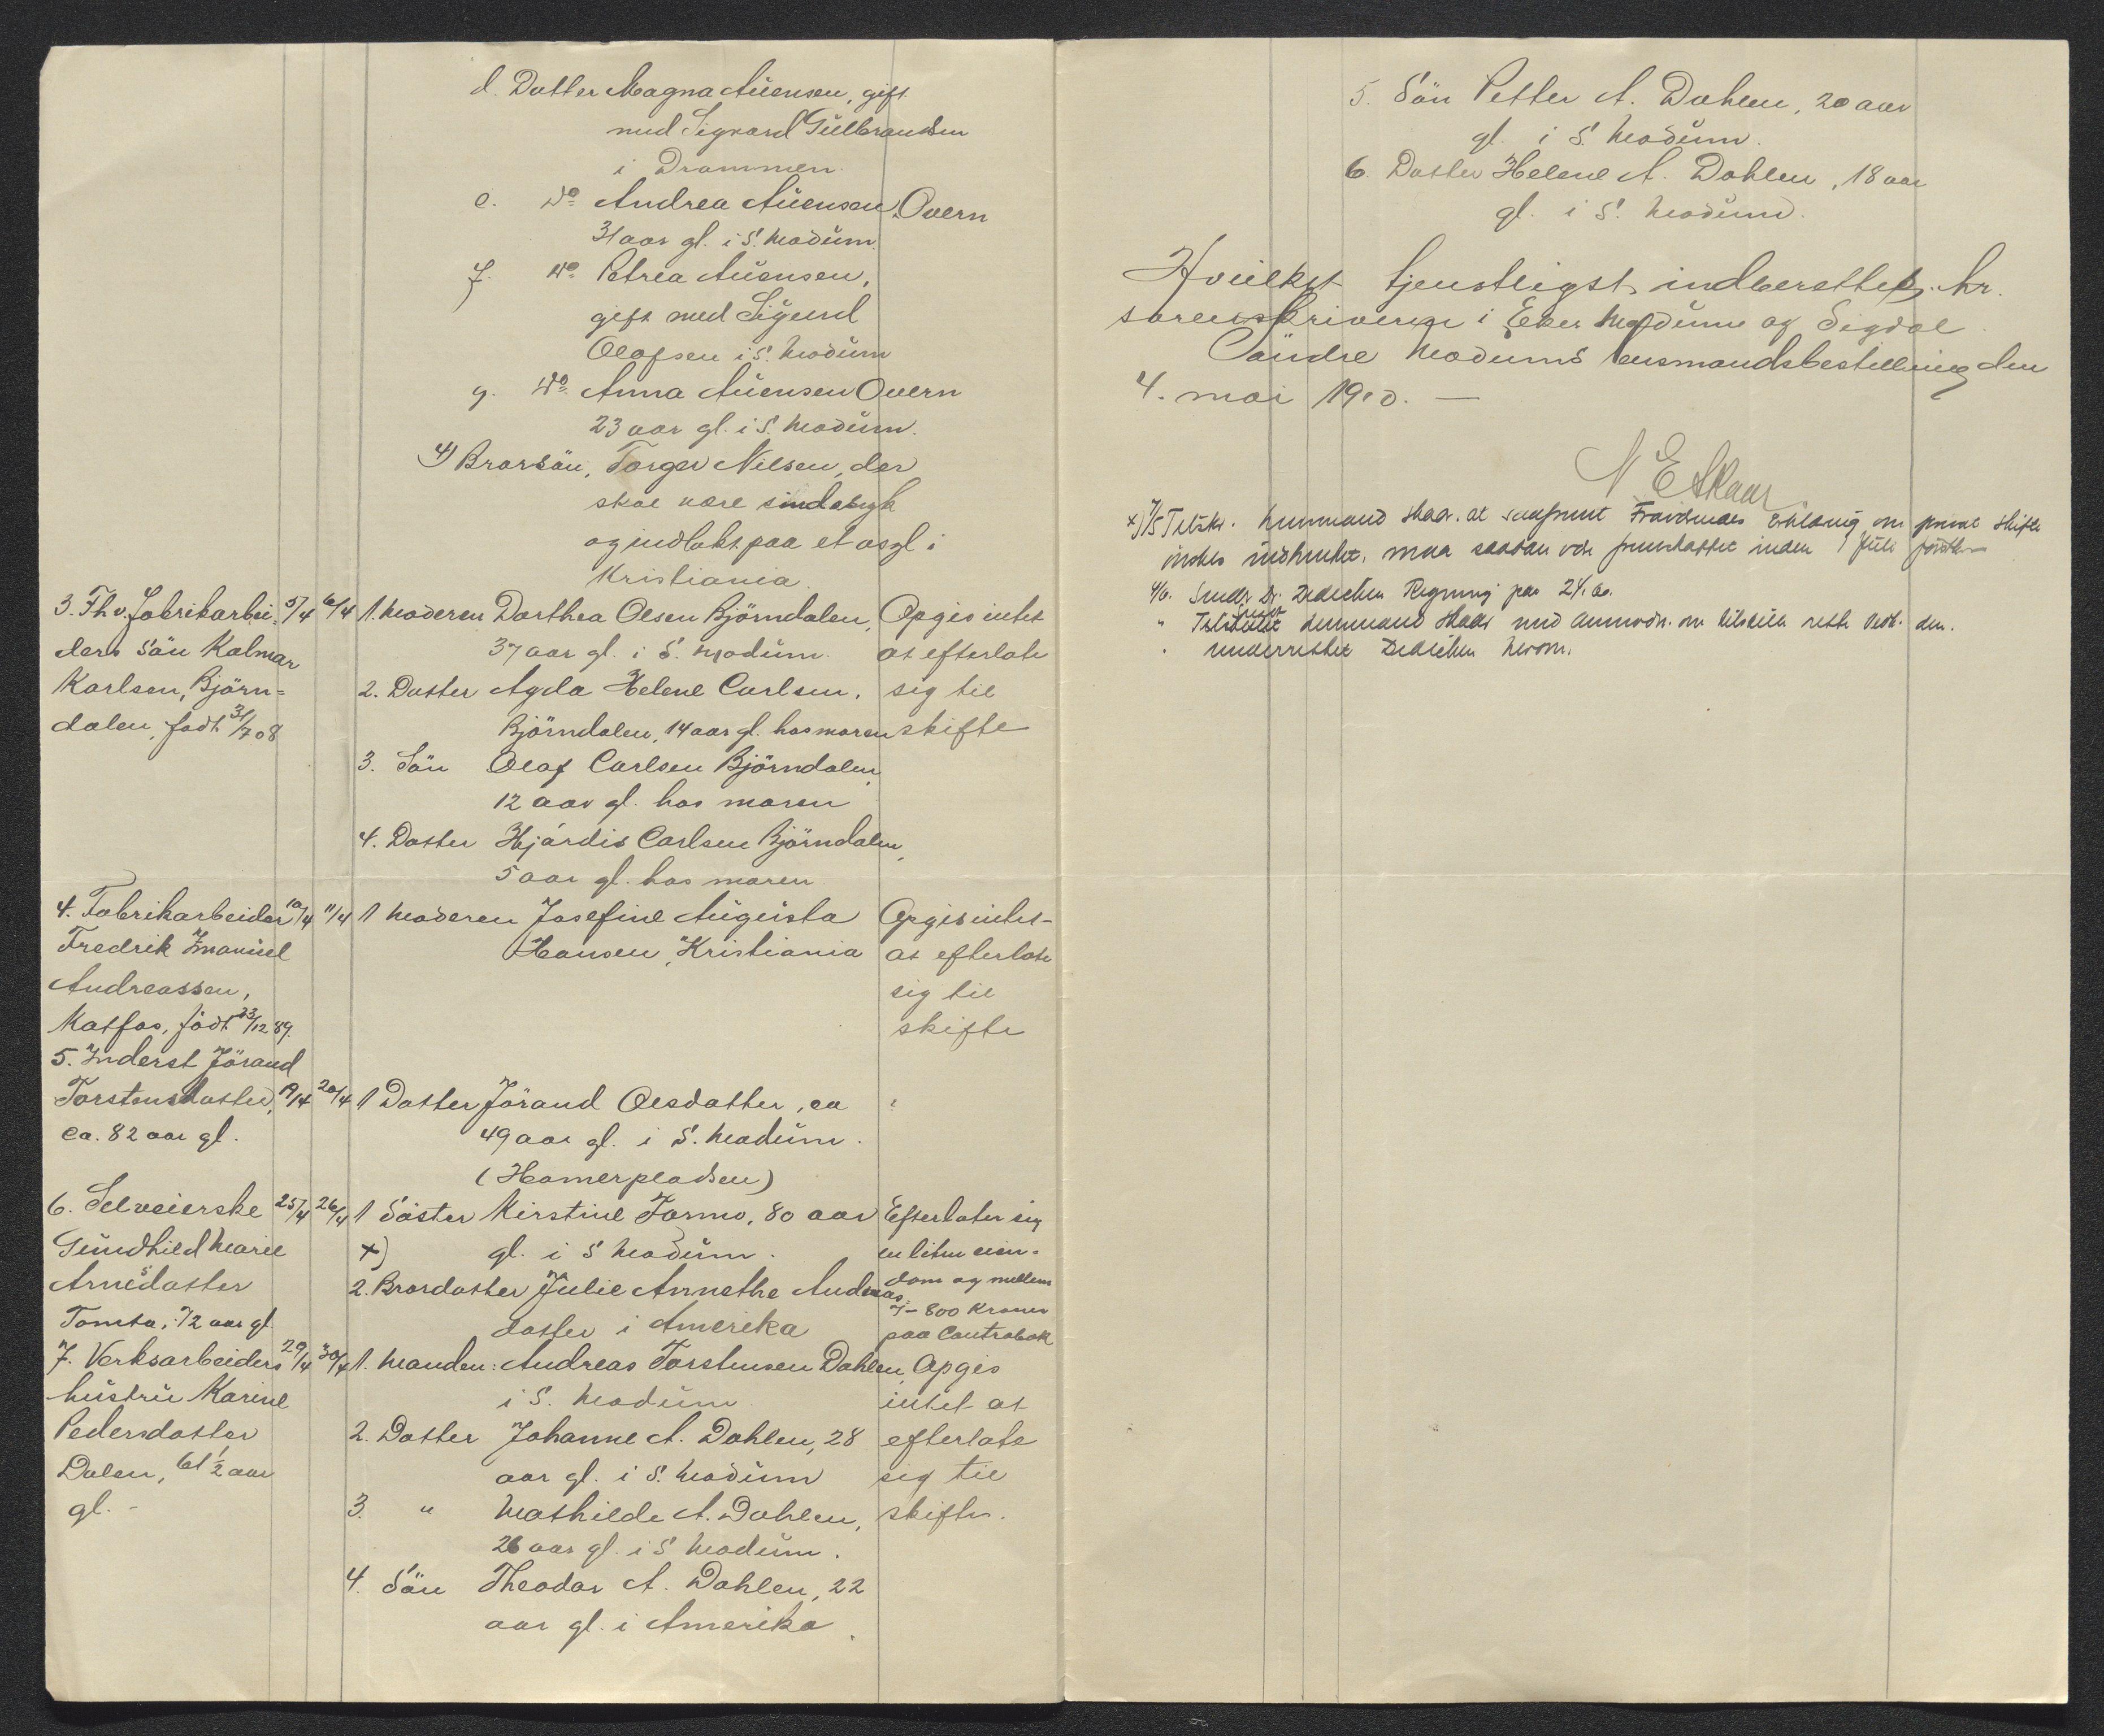 d. Datter Magna Auensen, gift
med Sigvard Gulbrandsen
i Drammen.
e. Do Andrea Auensen Overn
31 aar gl. i S. Modum.
f. Do Petrea Auensen,
gift med Sigurd
Olafsen i S. Modum
g. Do Anna Auensen Overn
23 aar gl. i S. Modum.
4) Brorsön, Torger Nilsen, der
skal være sindsbyk
og indlakt paa et asyl i
Kristiania.
3. Fhv. fabrikarbei- 5/4 6/4 1. Moderen Dorthea Olsen Björndalen, Opgis intet
ders sön Kalmar 37 aar gl. i S. Modum. at efterlate
Karlsen, Björn- 2. Datter Agda Helene Carlsen, sig til
dalen, födt 31/7 08 Björndalen, 14 aar gl. hos moren skifte
3. Sön Olaf Carlsen Björndalen,
12 aar gl. hos moren
4. Datter Hjárdis Carlsen Björndalen,
5 aar gl. hos moren
4. Fabrikarbeider 10/4 11/4 1 Moderen Josefine Augusta Opgis intet-
Fredrik Imanuel Hansen, Kristiania at efterlate
Andreassen, sig til
Katfos, födt 23/12 89. skifte
5. Inderst Jörand
Torstensdatter, 19/4 20/4 1 Datter Jörand Olsdatter, ca "
ca. 82 aar gl. 49 aar gl. i S. Modum.
(Hamerpladsen)
6. Selveierske 25/4 26/4 1 Söster Kirstine Formo, 80 aar Efterlater sig
Gundhild Marie x) gl. i S Modum. en liten eien-
Arnesdatter 2. Brordatter Julie Annethe Andreas- dom og mellem
Tomta, 72 aar gl. datter i Amerika 7-800 Kroner
paa Contrabok
7. Verksarbeiders 29/4 30/4 1. Manden: Andreas Torstensen Dahlen, Opgis
hustru Karine i S. Modum intet at
Pedersdatter 2. Datter Johanne A. Dahlen, 28 efterlate
Dalen, 61 1/2 aar aar gl. i S. Modum sig til
gl. - 3. " Mathilde A. Dahlen, skifte.
26 aar gl. i S Modum.
4. Sön Theodor A. Dahlen, 22
aar gl. i Amerika.
5. Sön Petter A. Dahlen, 20 aar
gl. i S. Modum.
6. Datter Helene A. Dahlen, 18 aar
gl. i S. Modum.
Hvilket tjenstligst indberettes hr.
sorenskriveren i Eker Modum og Sigdal.
Söndre Modums lensmandsbestilling den
4. mai 1910. —
N E Skaar
x) 7/5 Tilskr. lensmand Skaar. at saafremt Erklæring om privat skifte
indhentet, maa saadan inden 1 Juli
4/6. Sendt Regning paa 24.60.
" lensmand Skaar med
" underrettet herom.